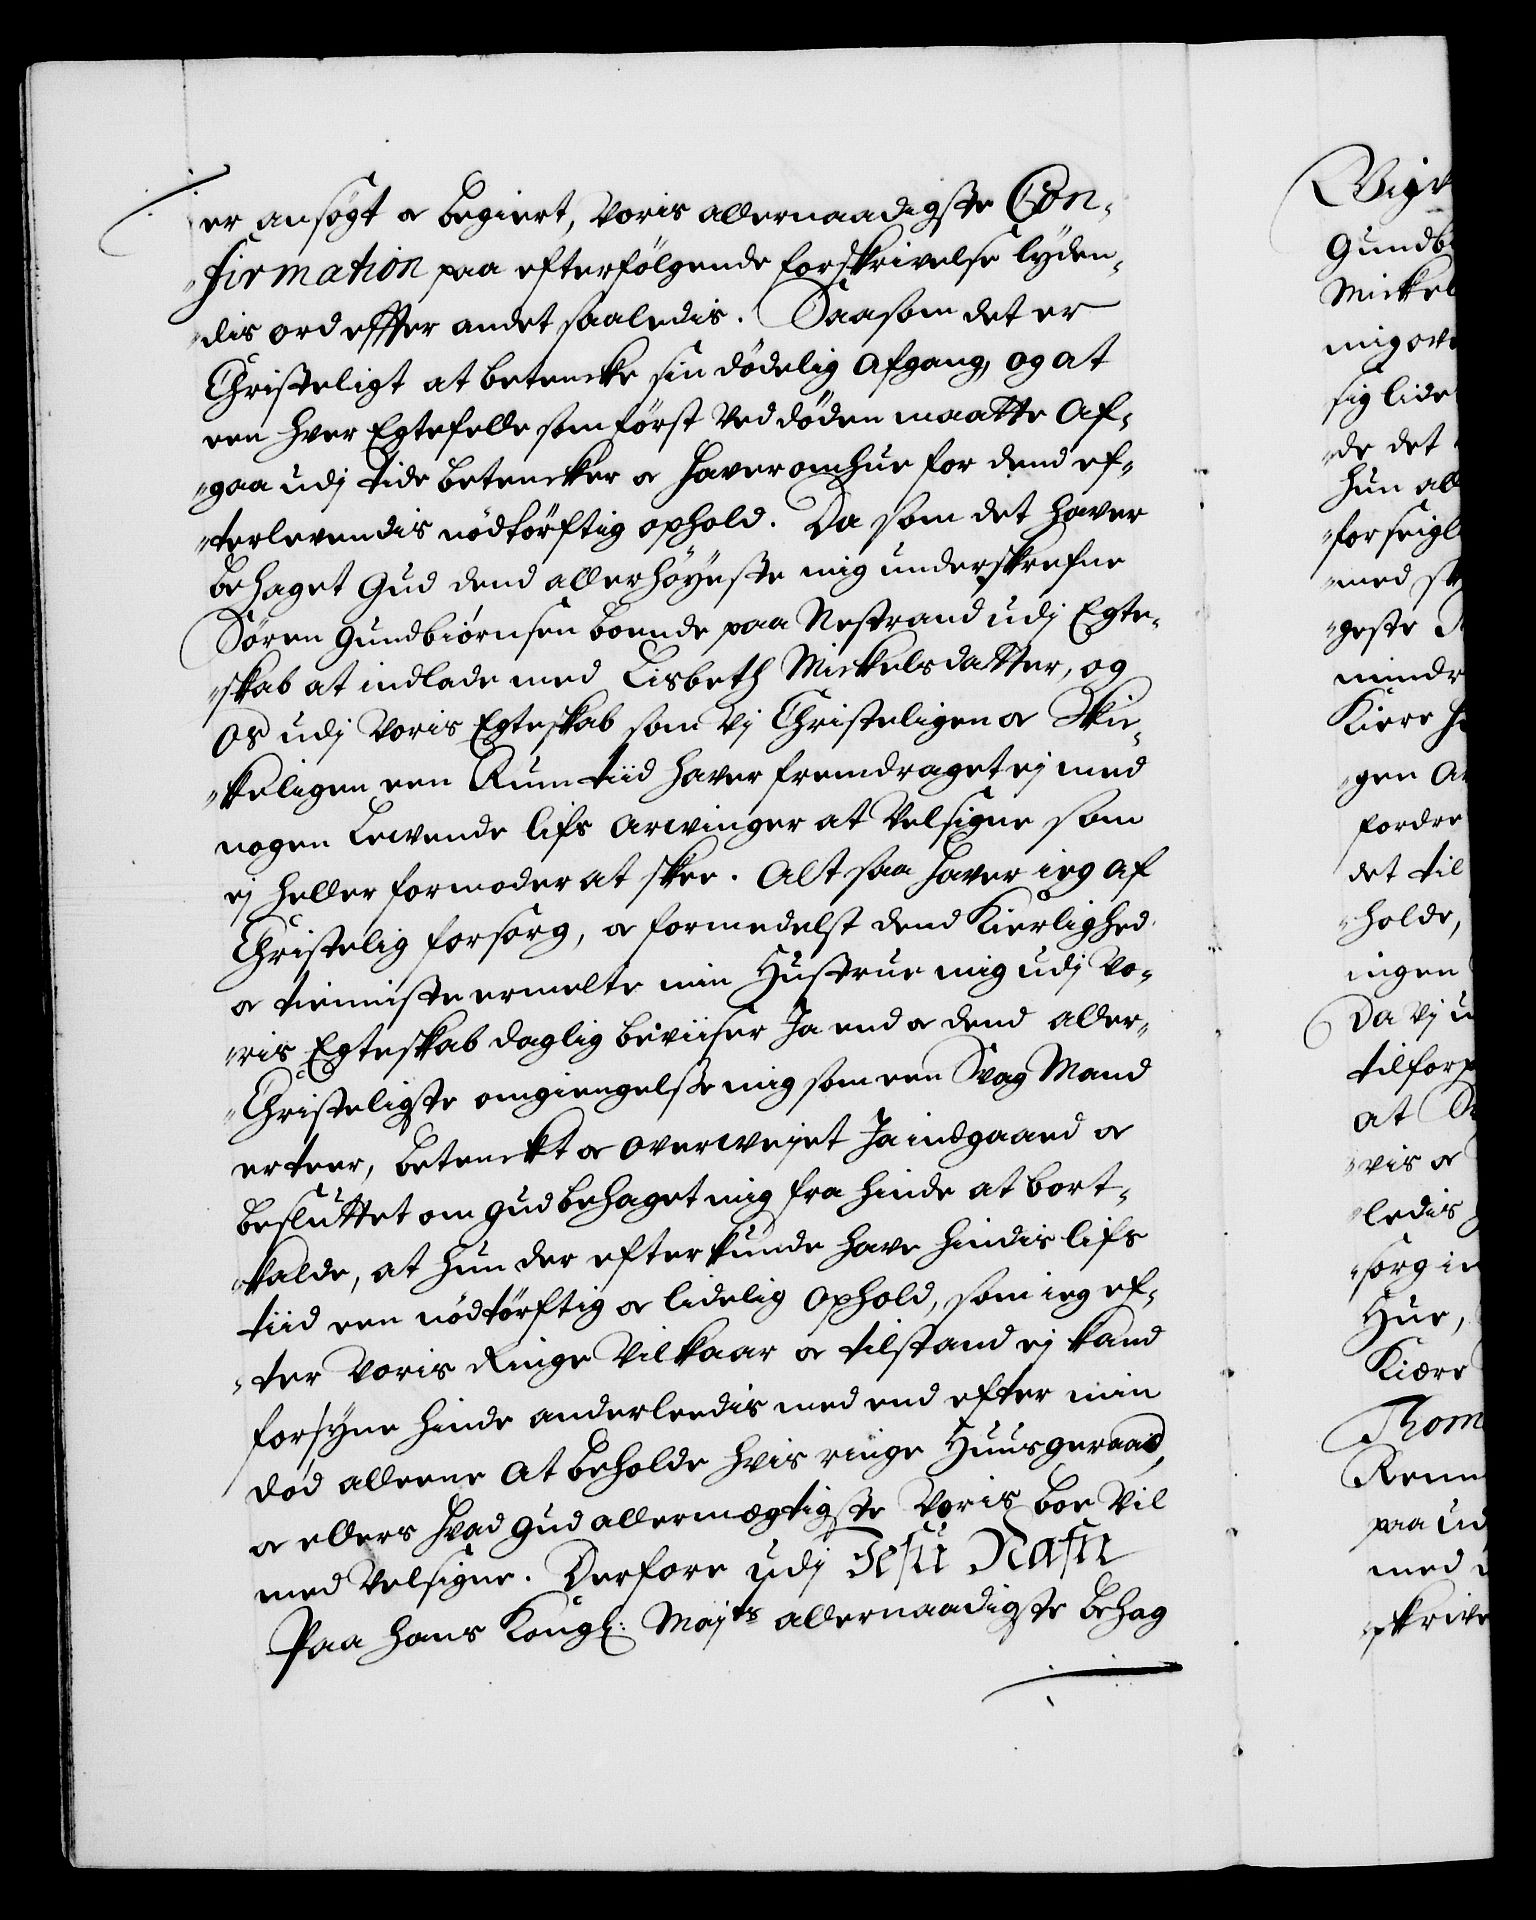 er ansøgt oc begiert, Voris allernaadigste Con-
firmation paa efterfølgende forskrivelse lyden-
dis ord effter andet saaledis. Saasom det er
Christeligt at betencke sin dødelig Afgang, og at
een hver Egtefelle som først ved døden maatte Af-
gaa udj tide betencker oc haver omhue for dend ef-
terlevendis nødtørftig ophold. Da som det haver
behaget Gud dend allerhøyeste mig underskrefne
Søren Gundbiørnsen boende paa Nestrand udj Egte-
skab at indlade med Lisbeth Mickelsdatter, og
Os udj Voris Egteskab som Vj Christeligen oc Skic-
keligen een Rum tiid haver fremdraget ej med
nogen Levende lifs Arwinger at Velsigne som
ej heller formoder at skee. Alt saa haver ieg af
Christelig forsorg, oc formedelst dend Kierlighed
oc tienniste ermelte min Hustrue mig udj Vo-
ris Egteskab daglig beviiser Ja end oc dend aller-
Christeligste omgiengelse mig som een Svag Mand
erteer, betenckt oc overwejet Ja indgaaed oc
besluttet om Gud behaget mig fra hinde at bort-
kalde, at hun der efter kunde have hindis lifs
tiid een nødtørftig oc lidelig ophold, som ieg ef-
ter Voris Ringe Vilkaar oc tilstand ej kand
forsyne hinde anderleedis med end efter min
død alleene at beholde hvis ringe Huusgeraad,
oc ellers hvad Gud allermægtigste Voris boe Vil
med Velsigne. Derfore udj Jesu Nafn
Paa hans Kongl: Majts allernaadigste behag
Gundb
Mickel
mig ov
sig lide
de det
hun all
forseigl
med st
geste
mindr
Kiere h
gen A
fordre
det til
holde,
ingen
Da Vj u
tilforp
at
vis oc
ledis
sorg i
Hue,
Kiære
Thom
paa ud
med
skrive